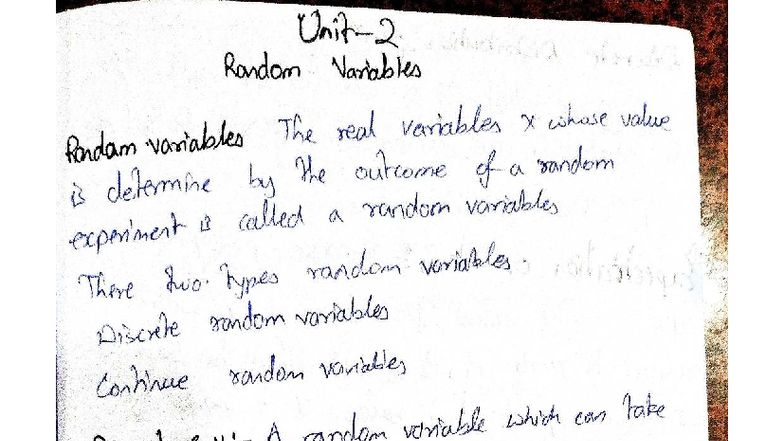 Unit-2
Random Variables
Random variables The real variables x whose value
is determine by the outcome of a random
experiment is called a random variables
There two types random variables.
Discrete random variables
Continue random variables
A random variable which can take